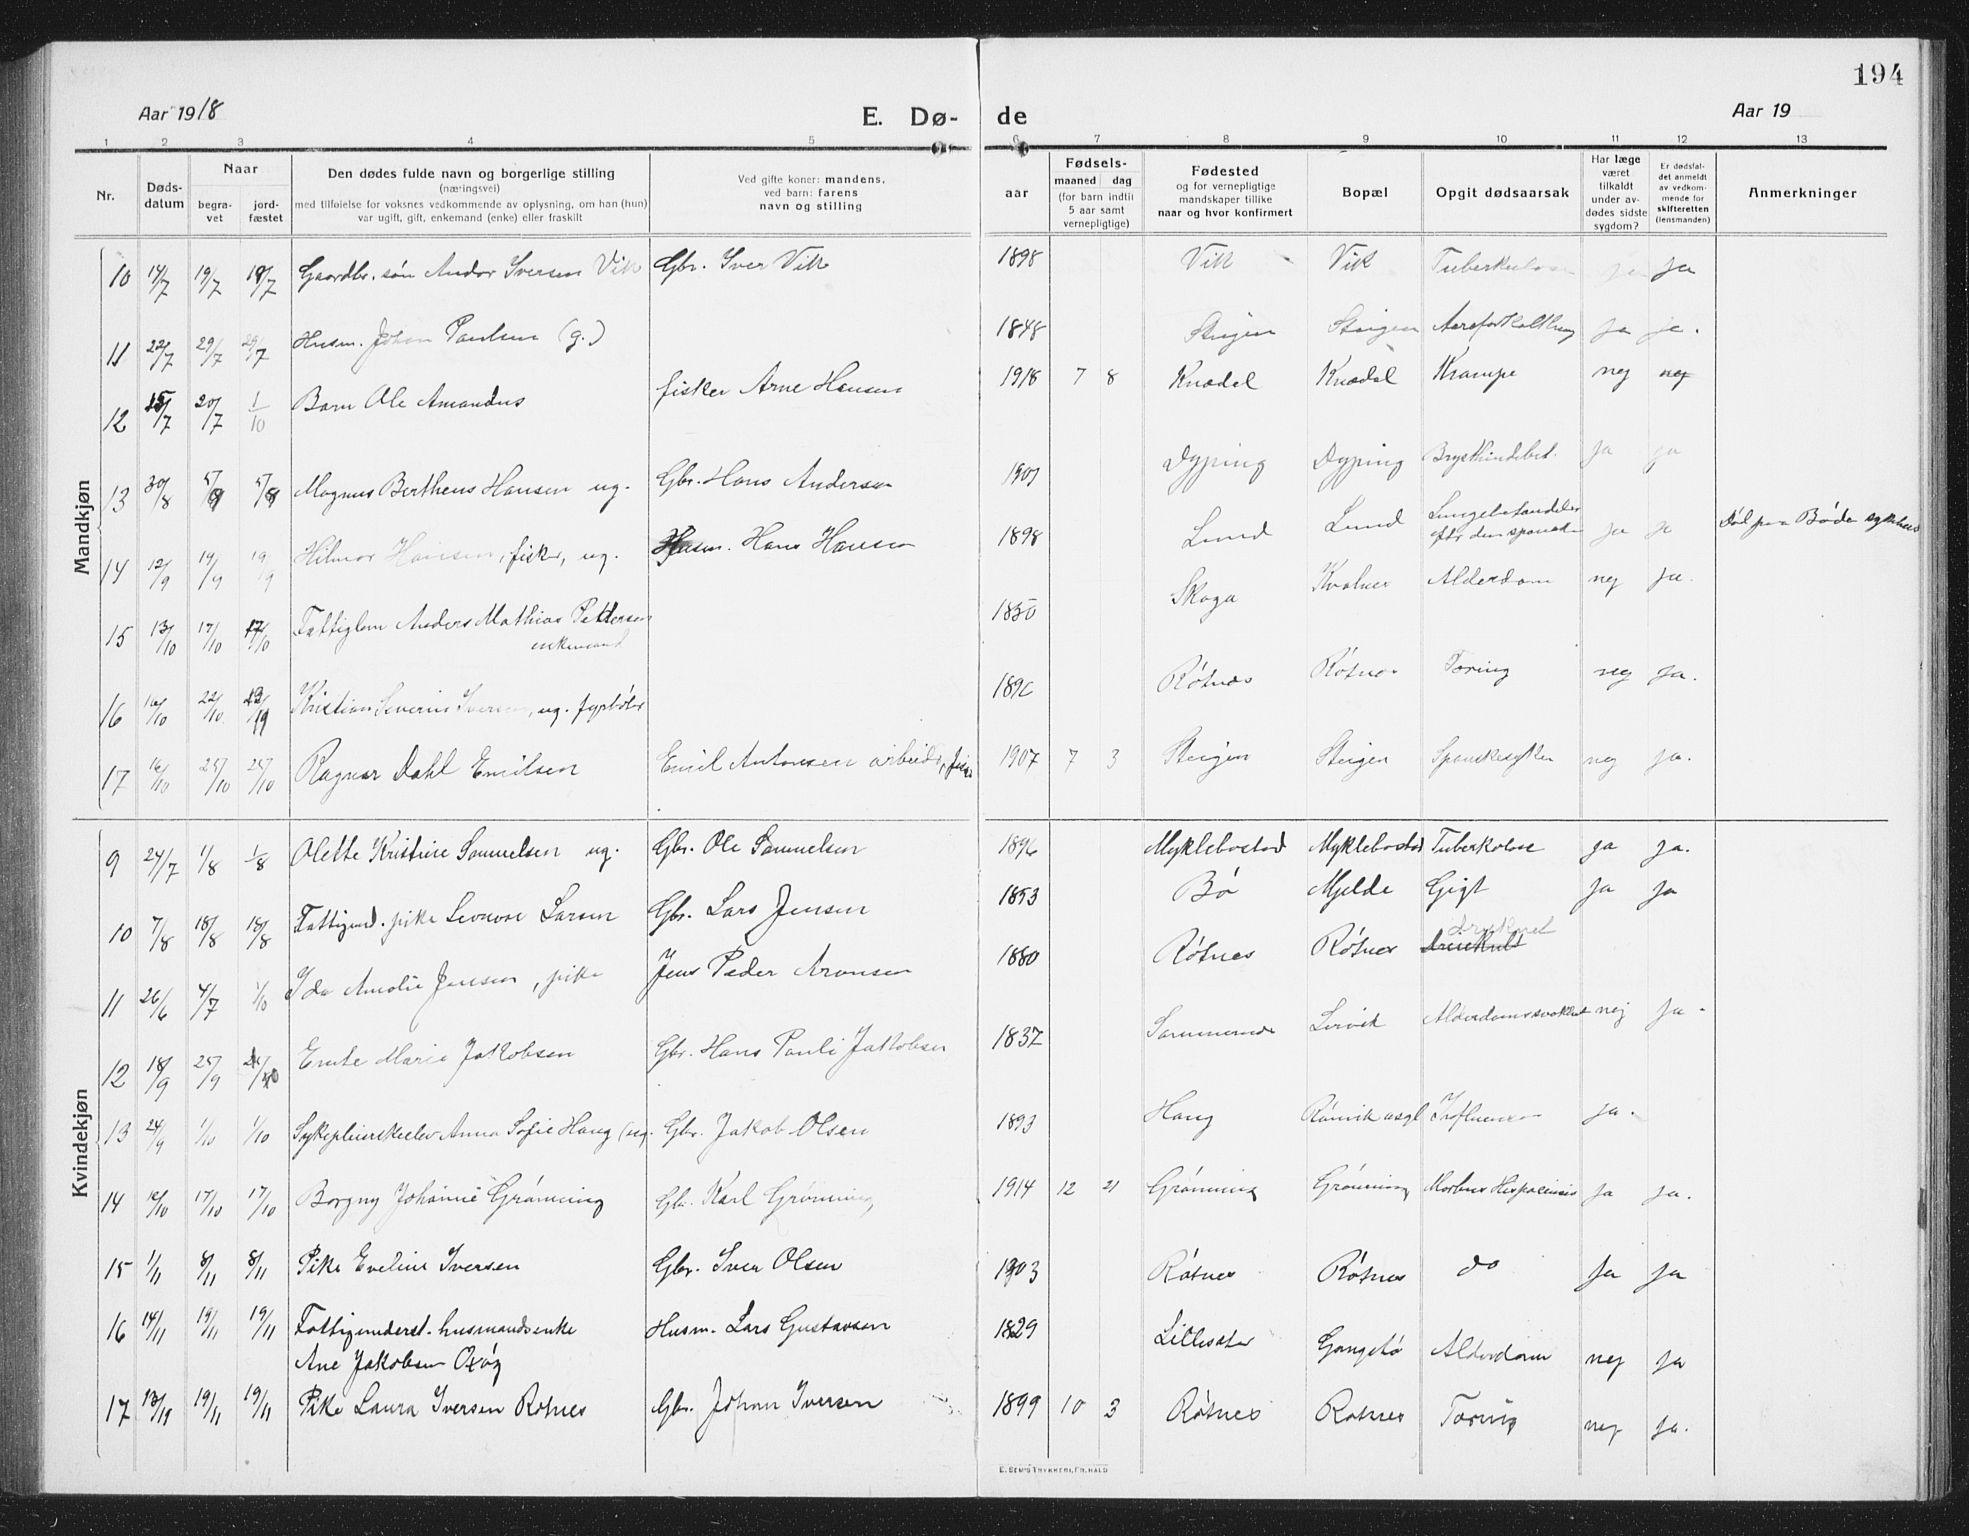 194
Aar 1918 E. Dø- de Aar 19
1 2 3 4 5 6 7 8 9 10 11 12 13
Nr.
Døds-
datum
Naar
begra-
vet
jord-
fæstet
Den dødes fulde navn og borgerlige stilling
(næringsvei)
med tilføielse for voksnes vedkommende av oplysning, om han (hun)
var ugift, gift, enkemand (enke) eller fraskilt
Ved gifte koner: mandens,
ved barn: farens
navn og stilling
aar
Fødsels-
maaned dag
(for barn indtil
5 aar samt
vernepligtige)
Fødested
og for vernepligtige
mandskaper tillike
naar og hvor konfirmert
Bopæl
Opgit dødsaarsak
Har læge
været
tilkaldt
under av-
dødes sidste
sygdom?
Er dødsfal-
det anmeldt
av vedkom-
mende for
skifteretten
(lensmanden)
Anmerkninger
Mandkjøn
10 14/7 19/7 19/7 Gaardbr. søn Andor Iversen Vik Gbr. Iver Vik 1898 Vik Vik Tuberkulose ja ja
11 22/7 29/7 29/7 Husm. Johan Paulsen (g.) 1848 Steigen Steigen Aareforkalkning ja ja.
12 15/7 20/7 1/10 Barn Ole Amandus fisker Arne Hansen 1918 7 8 Knædal Knædal Krampe nej nej
13 30/8 5/9 5/8 Magnus Bertheus Hansen ug. Gbr. Hans Andersen 1907 Dyping Dyping Brysthindebet. ja ja
14 12/9 19/9 19/9 Hilmar Hansen, fisker, ug. Husm. Hans Hansen 1898 Lund Lund Lungebetændelse
efter den spanske ja ja Død paa Bodø sykehus
15 13/10 17/10 17/10 Fattiglem Anders Mathias Pettersen
enkemand 1850 Skaga Kvalnes Alderdom nej ja.
16 16/10 22/10 Kristian Severin Iversen, ug. fyrbøter Røtnes Røtnes Tæring nej ja.
17 16/10 25/10 25/10 Ragnar Dahl Emilsen Emil Antonsen arbeider, 1907 7 3 Steigen Steigen Spanskesyken nej ja.
Kvindekjøn
9 24/7 1/8 1/8 Olette Kristine Samuelsen ug. Gbr. Ole Samuelsen 1896 Myklebostad Myklebostad Tuberkolose ja ja.
10 7/8 18/8 18/8 Fattigund. pike Levense Larsen Gbr. Lars Jensen 1853 Bø Mjelde Gigt ja ja
11 26/6 4/7 1/10 Ida Amalie Jensen, pike Jens Peder Aronsen 1880 Røtnes Røtnes druknet
12 18/9 25/9 Emte Marie Jakobsen Gbr. Hans Pauli Jakobsen 1837 Sammernes Leivik Alderdomssvakhet nej ja
13 24/9 1/10 1/10 Sykepleierskeelev Anna Sofie Haug (ug. Gbr. Jakob Olsen 1893 Haug Rønvik asyl Influensa ja.
14 10/10 17/10 17/10 Borgny Johanne Grønning Gbr. Karl Grønning 1914 12 21 Grønning Grønning Morbus Hispaniensis ja ja.
15 1/11 8/11 8/11 Pike Eveline Iversen Gbr. Iver Olsen 1903 Røtnes Røtnes do ja ja
16 14/11 19/11 19/11 Fattigunderst. husmandsenke Husm. Lars Gustavsen 1829 Lillesæter Gangstø Alderdom nej ja
Ane Jakobsen Oxøg
17 13/11 19/11 19/11 Pike Laura Iversen Rotnes Gbr. Johan Iversen 1899 10 3 Røtnes Rotnes Tæring nej ja.
E. SEM'S TRYKKERI, FR.HALD